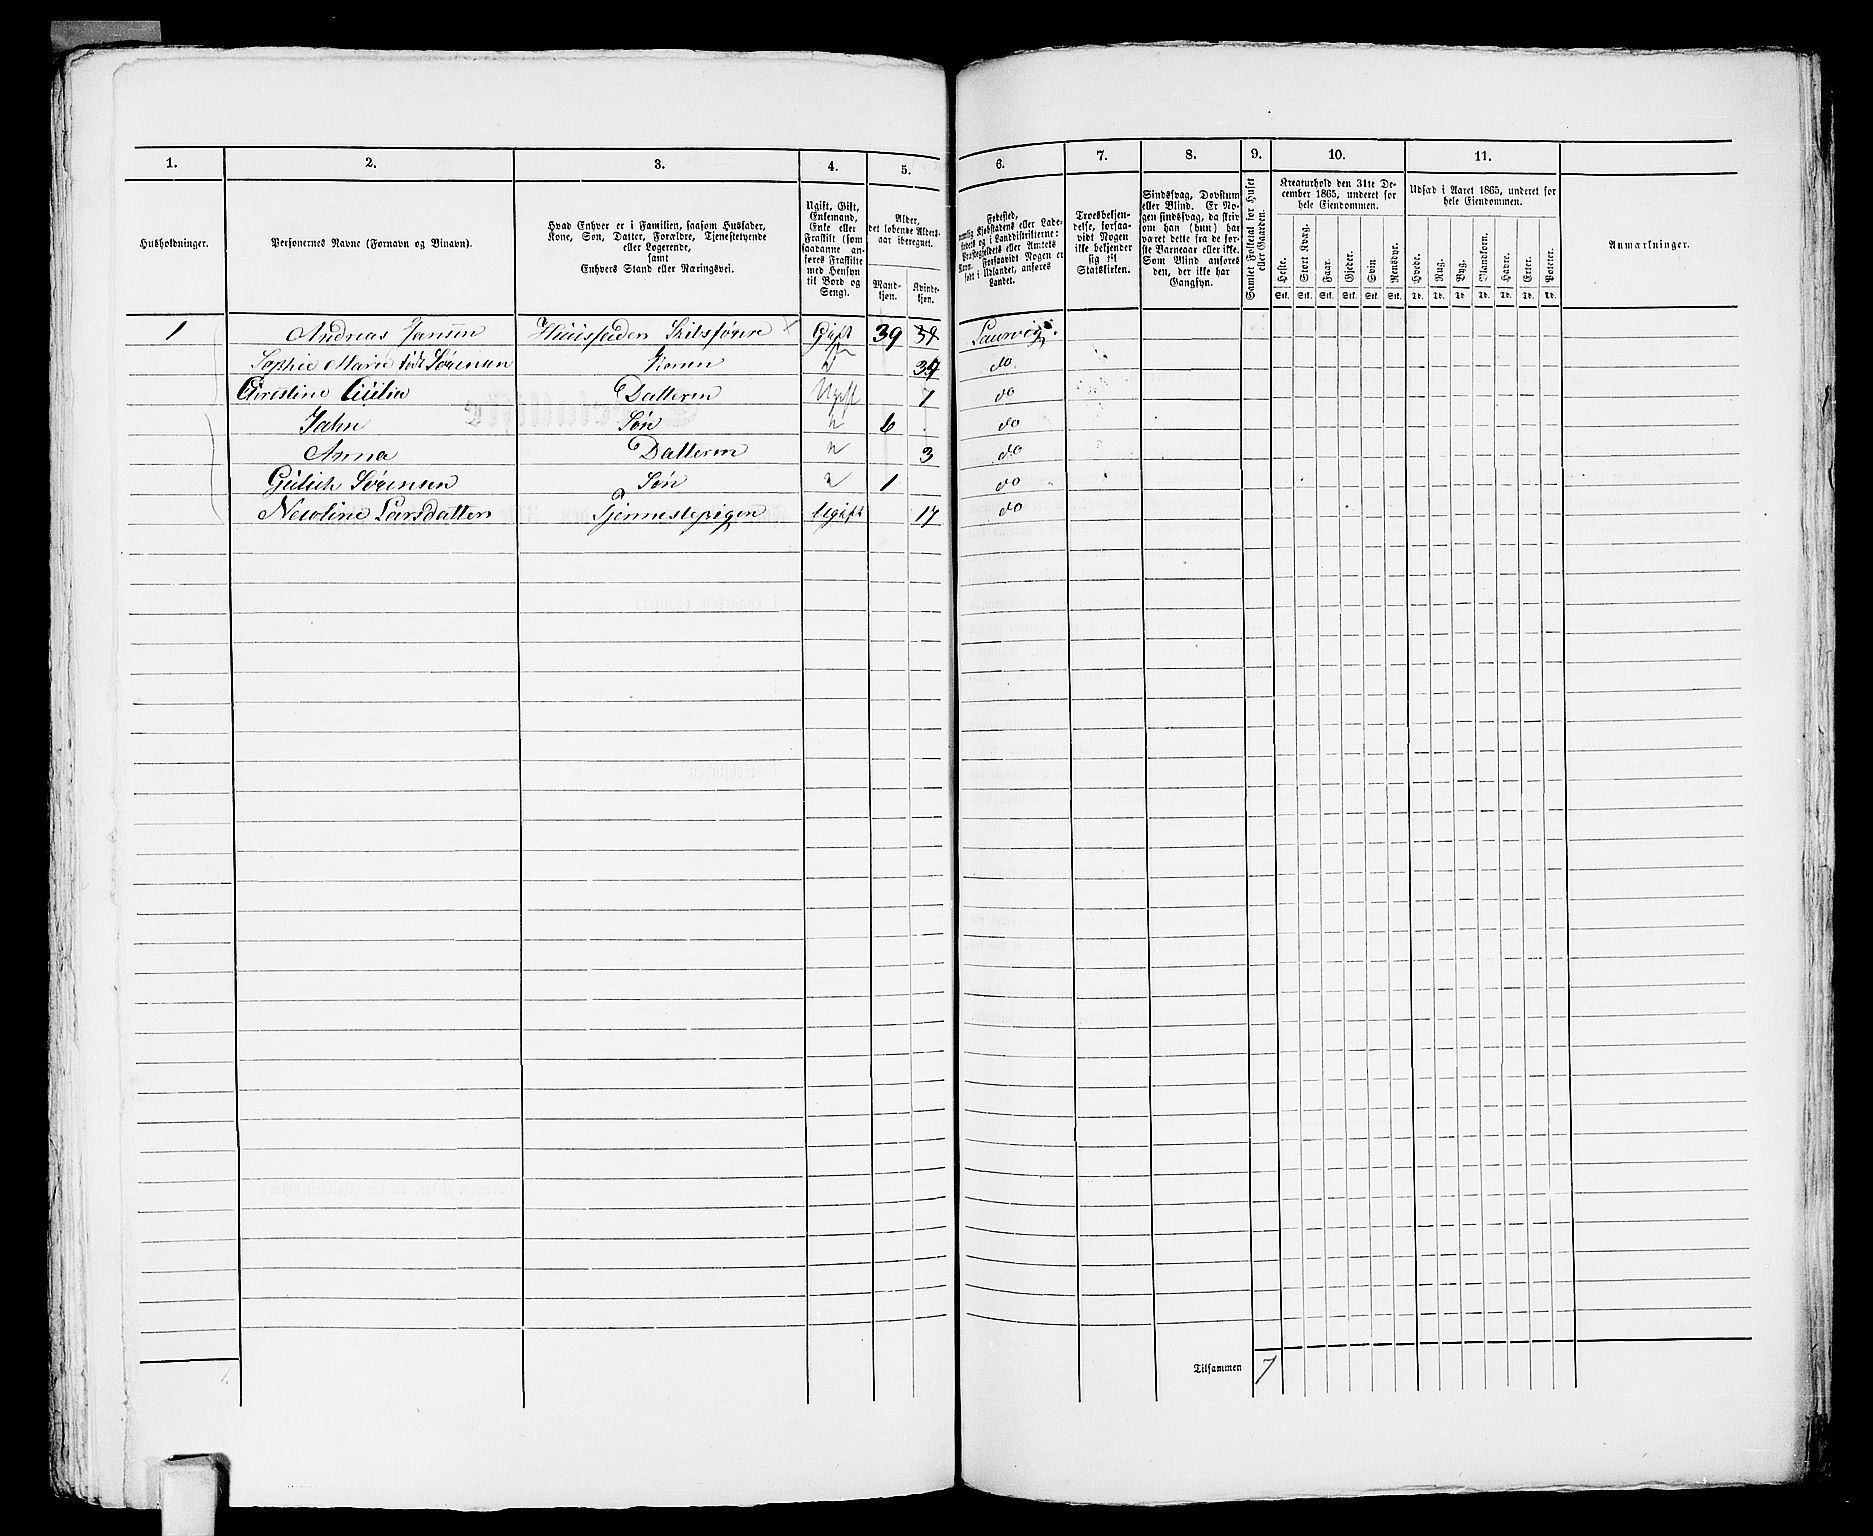 1. 2. 3. 4. 5. 6. 7. 8. 9. 10. 11.
Husholdninger.
Personernes Navne (Fornavn og Binavn).
Hvad Enhver er i Familien, saasom Husfader,
Kone, Søn, Datter, Forældre, Tjenestetyende
eller Logerende,
samt
Enhvers Stand eller Næringsvei.
Ugift, Gift,
Enkemand,
Enke eller
Fraskilt (som
saadanne an-
føres Fraskilte
med Hensyn
til Bord og
Seng).
Alder,
det løbende Alders-
aar iberegnet.
Mand-
kjøn.
Kvinde-
kjøn.
Fødested,
nemlig Kjøbstadens eller Lade-
stedets og i Landdistrikterne:
Præstegjeldets eller Amtets
Navn. Forsaavidt Nogen er
født i Udlandet, anføres
Landet.
Troesbekjen-
delse, forsaa-
vidt Nogen
ikke bekjender
sig til
Statskirken.
Sindssvag, Døvstum
eller Blind. Er No-
gen sindssvag, da skriv
om han (hun) har
været dette fra de før-
ste Barneaar eller ikke.
Som Blind anføres
den, der ikke har
Gangsyn.
Samlet Folketal for Huset
eller Gaarden.
Kreaturhold den 31te De-
cember 1865, underet for
hele Eiendommen.
Heste. Stort Kvæg. Faar. Gjeder. Svin Rensdyr.
Stk. Stk. Stk. Stk. Stk. Stk.
Udsæd i Aaret 1865, underet for
hele Eiendommen.
Hvede. Rug. Byg. Blandkorn. Havre. Erter. Poteter.
Td. Td. Td Td. Td. Td. Td.
Anmærkninger.
1 Andreas Jansen Huusfaden Skibsfører Gift 39 39 Laurvig.
Sophie Marie født Sørensen Konen " 39 do
Christine Cicilie Datteren Ugift 7 do
Jahn Søn " 6 do
Anna Datteren " 3 do
Gülich Sørensen Søn " 1 do
Newline Larsdatter Tjennestepigen Ugift 17 do
Tilsammen 7